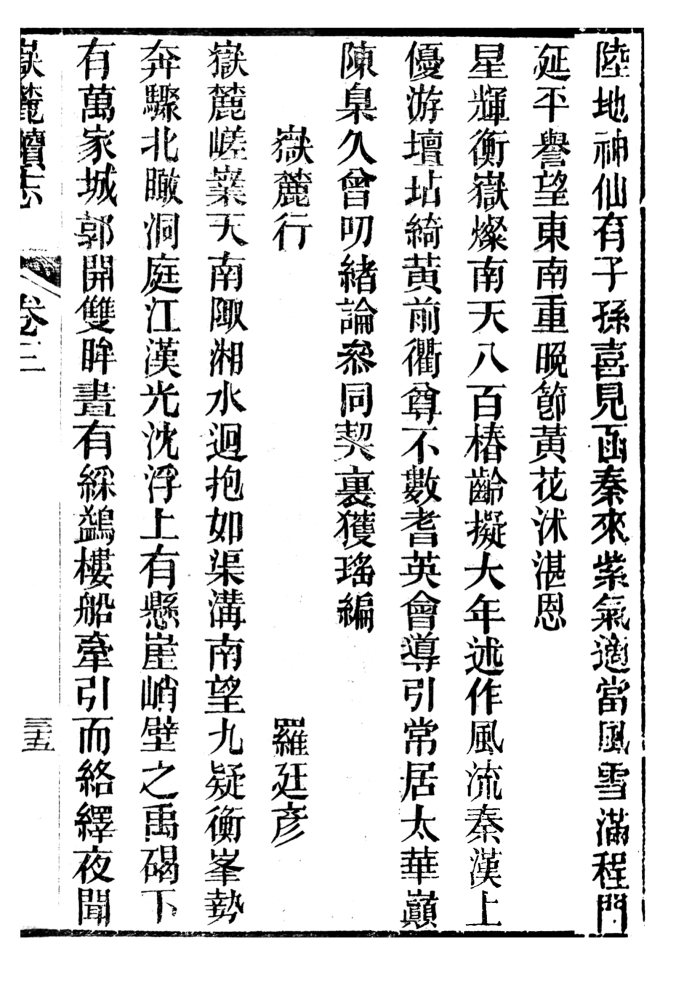 陸地神仙有子孫喜見函秦來紫氣適當風雪滿程門
延平譽望東南重晚節黃花沭湛恩
星輝衡嶽燦南天八百椿齡擬大年述作風流秦漢上
優游壇坫綺黃前衢尊不數耆英會導引常居太華巔
陳臬久曾叨緒論叅同契裏獲瑤編
嶽麓行　羅廷彥
嶽麓嵯嶪天南陬湘水迴抱如渠溝南望九疑衡峯勢
奔驟北瞰洞庭江漢光沈浮上有懸崖峭壁之禹碣下
有萬家城郭開雙眸晝有綵鷁樓船牽引而絡繹夜聞
嶽麓續志　卷三　三十五